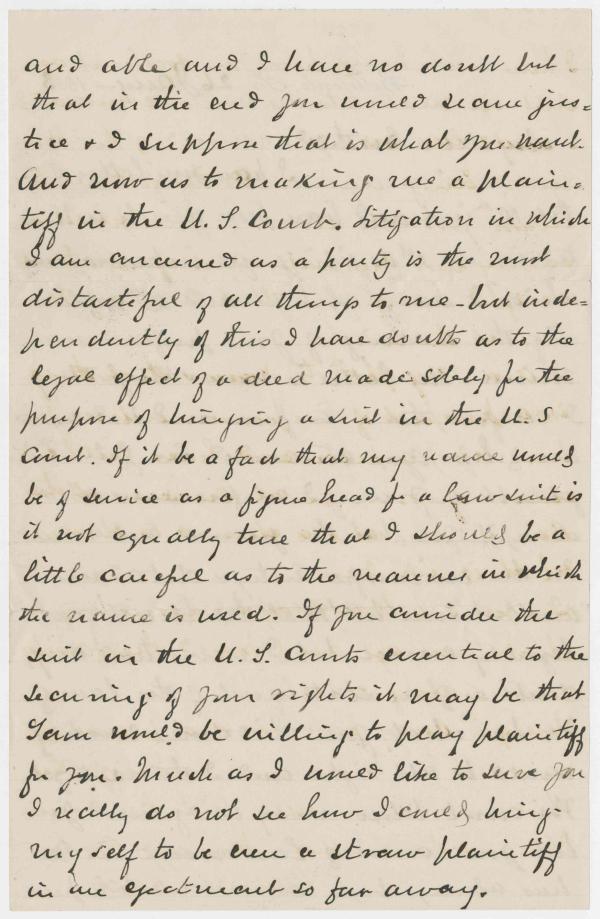 and able and I have no doubt but
that in the end you would secure jus=
tice & I suppose that is what you want.
And now as to making me a plain=
tiff in the U. S. Court. Litigation in which
I am concerned as a party is the most
distasteful of all things to me - but inde=
pendently of this I have doubts as to the
legal effect of a deed made solely for the
purpose of bringing a suit in the U. S
Court. If it be a fact that my name would
be of service as a figure head for a law suit is
it not equally true that I should be a
little careful as to the manner in which
the name is used. If you consider the
suit in the U. S. Courts essential to the
securing of your rights it may be that
Sam would be willing to play plaintiff
for you. Much as I would like to serve you
I really do not see how I could bring
myself to be even a straw plaintiff
in an ejectment so far away.